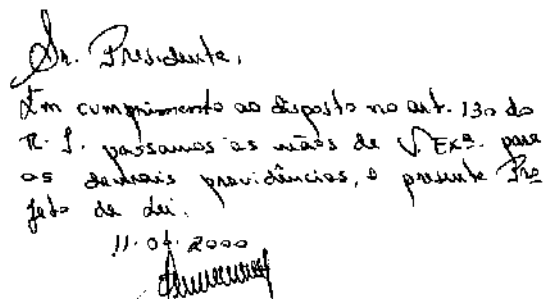 Sr. Presidente,
Em cumprimento ao disposto no art. 130 do
R. I. passamos as mãos de V. Exª. para
as demais providências, o presente Pro
jeto de Lei.
11.04.2000